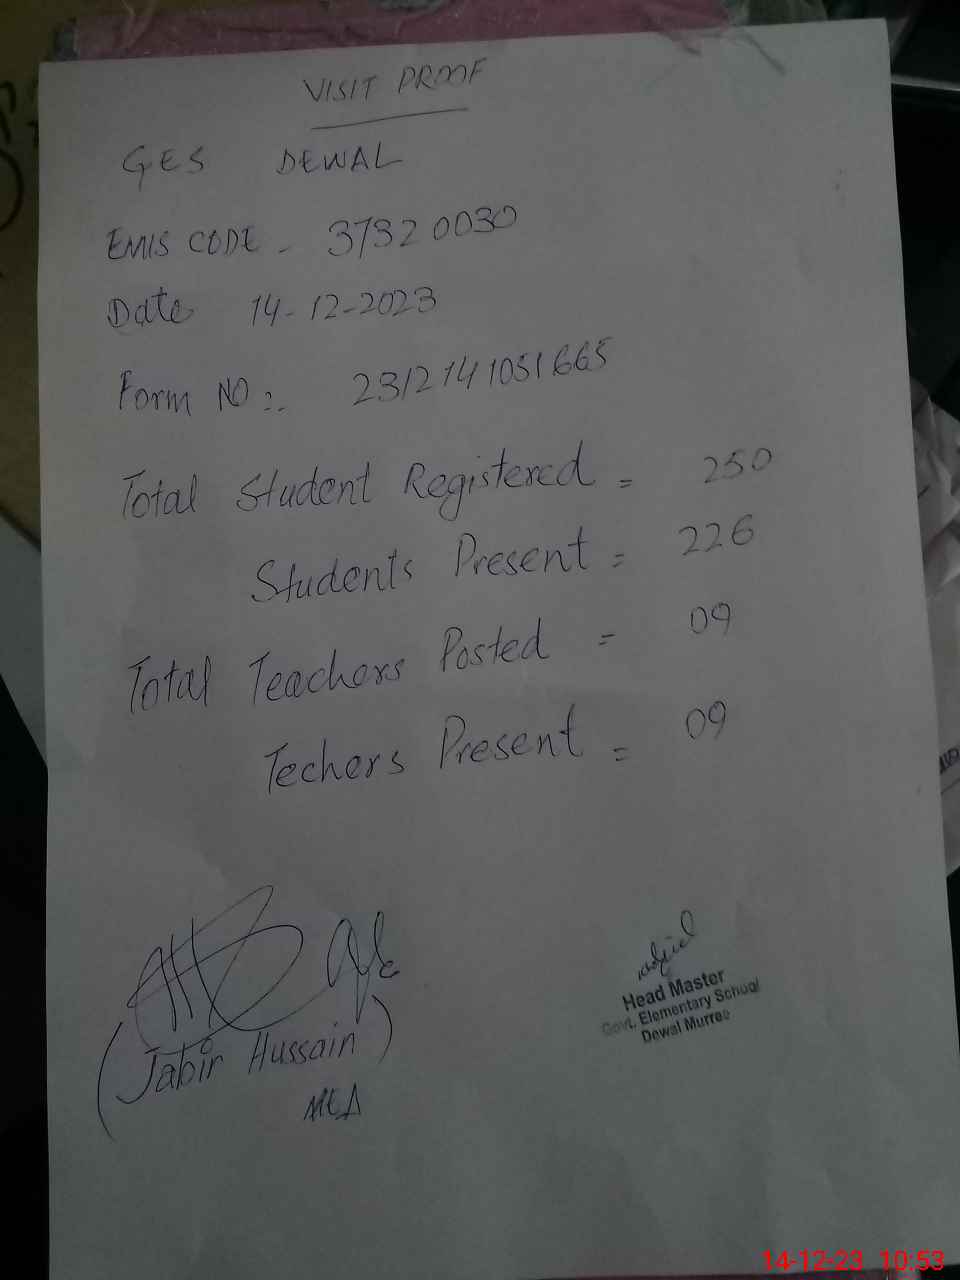 VISIT PROOF
GES DEWAL
EMIS CODE - 37320030
Date 14-12-2023
Form NO:. 2312141051665
Total Student Registered = 250
Students Present = 226
Total Teachers Posted = 09
Techers Present = 09
(Jabir Hussain)
MEA
Head Master
Govt. Elementary School
Dewal Murree
14-12-23 10:53